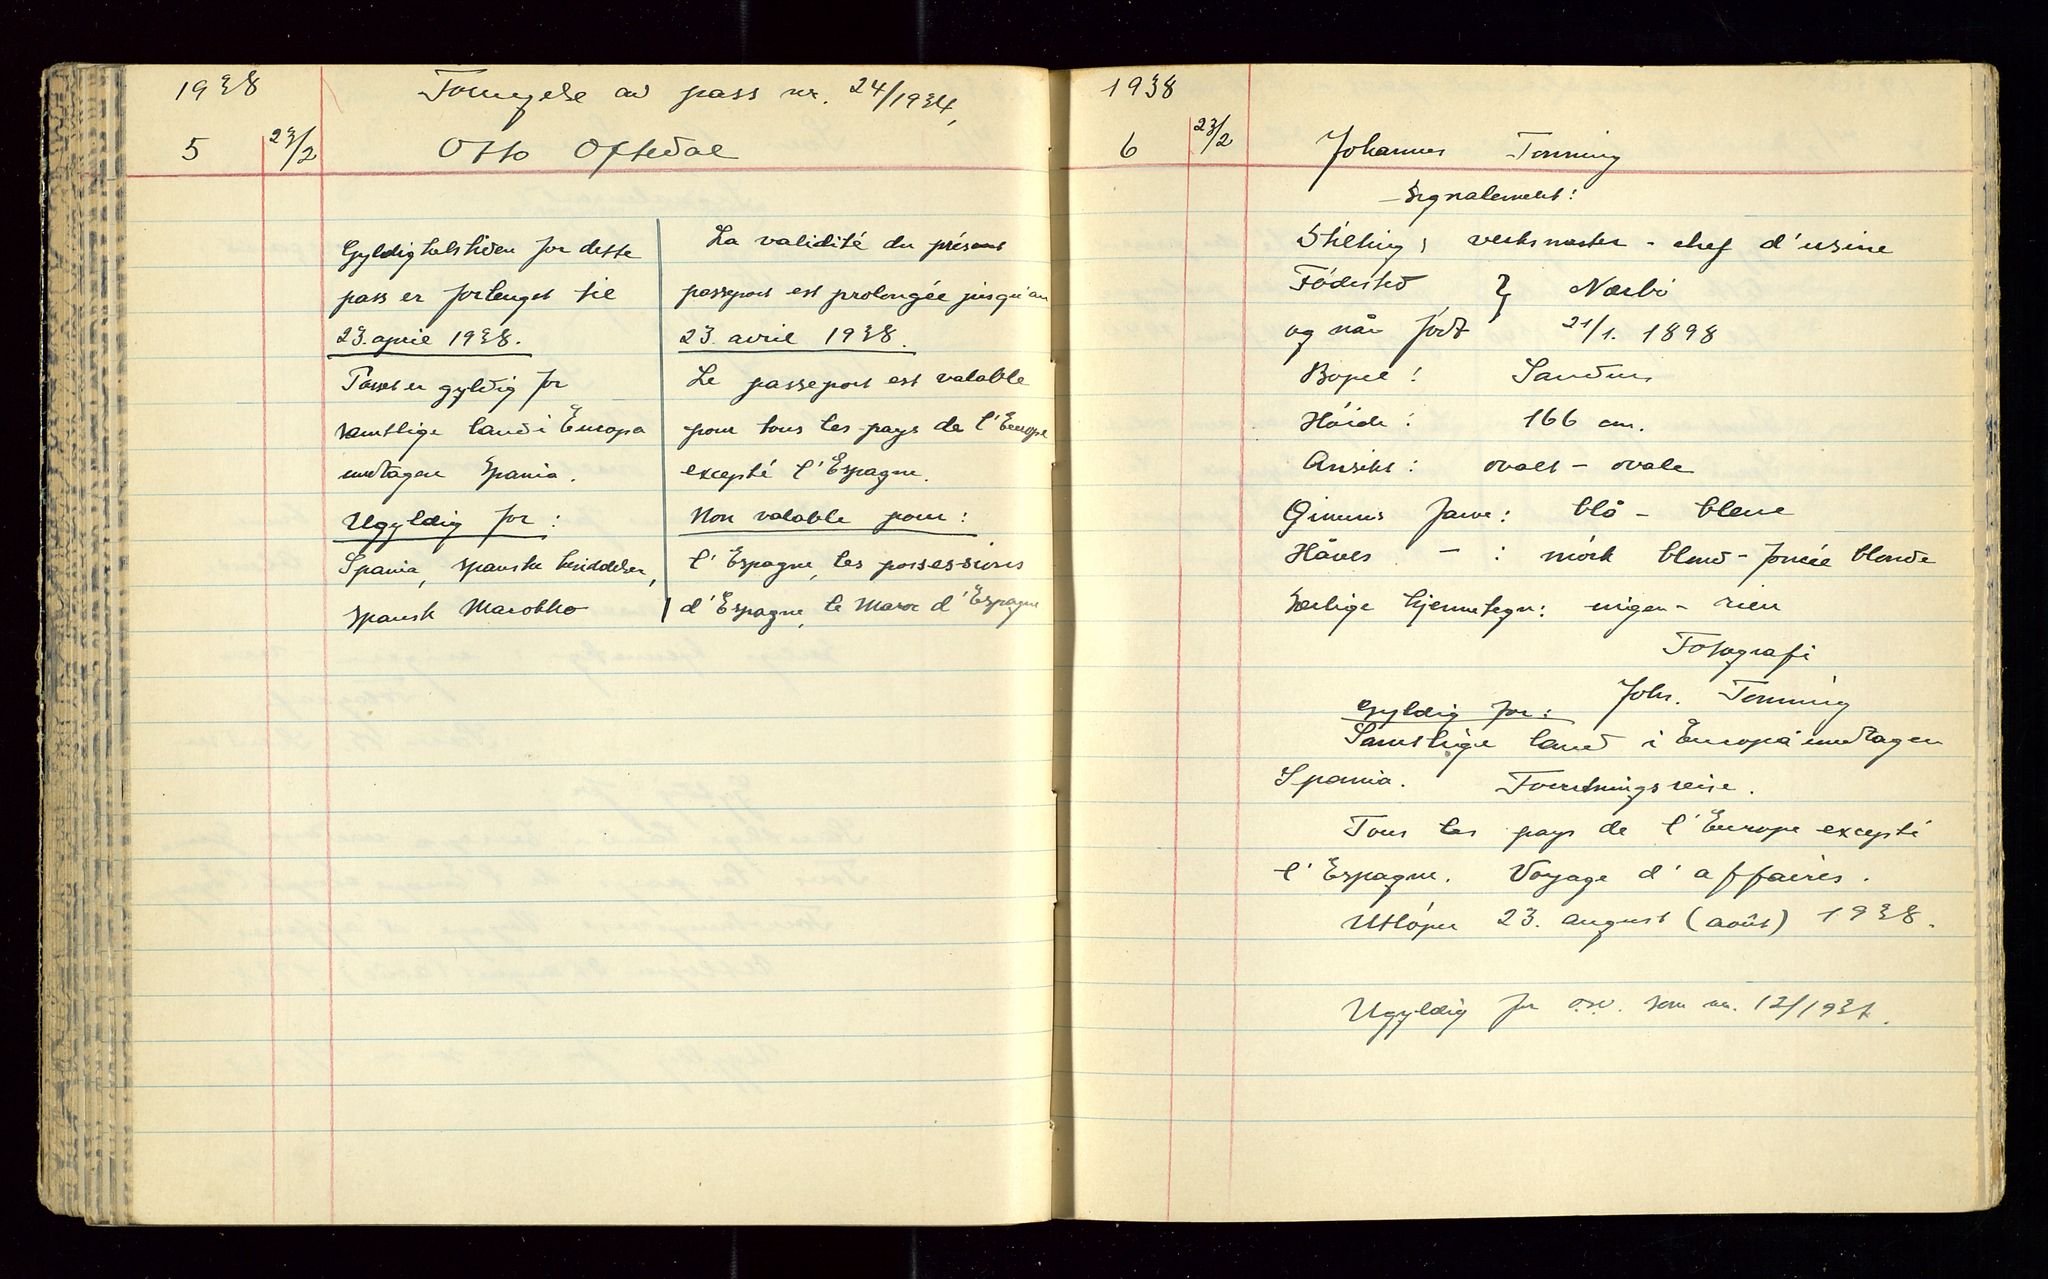 1938
Fornyelse av pass nr. 24/1934,
5 23/2 Otto Oftedal
Gyldighetstiden for dette
pass er forlenget til
23. april 1938.
Passet er gyldig for
samtlige land i Europa
undtagen Spania.
Ugyldig for:
Spania, spanske besiddelser,
spansk Marokko
La validité du présent
passeport est prolongée jusqu'au
23. avril 1938.
Le passeport est valable
pour tous les pays de l'Europe
excepté l'Espagne.
Non valable pour:
l'Espagne, les possessions
d'Espagne, le Maroc d'Espagne
1938
6 23/2 Johannes Tonning
Signalement:
Stilling: verksmester - chef d'usine
Fødested } Nærbø
og når født 21/1. 1898
Bopel: Sandnes
Høide: 166 cm.
Ansikt: ovalt - ovale
Øinenes farve: blå - bleue
Håres - : mørk blond - foncée blonde
Særlige kjennetegn: ingen - rien
Fotografi
Johs. Tonning
Gyldig for:
Samtlige land i Europa undtagen
Spania. Forretningsreise.
Tous les pays de l'Europe excepté
l'Espagne. Voyage d'affaires.
Utløper 23. august (août) 1938.
Ugyldig for o.s.v. som nr. 12/1937.